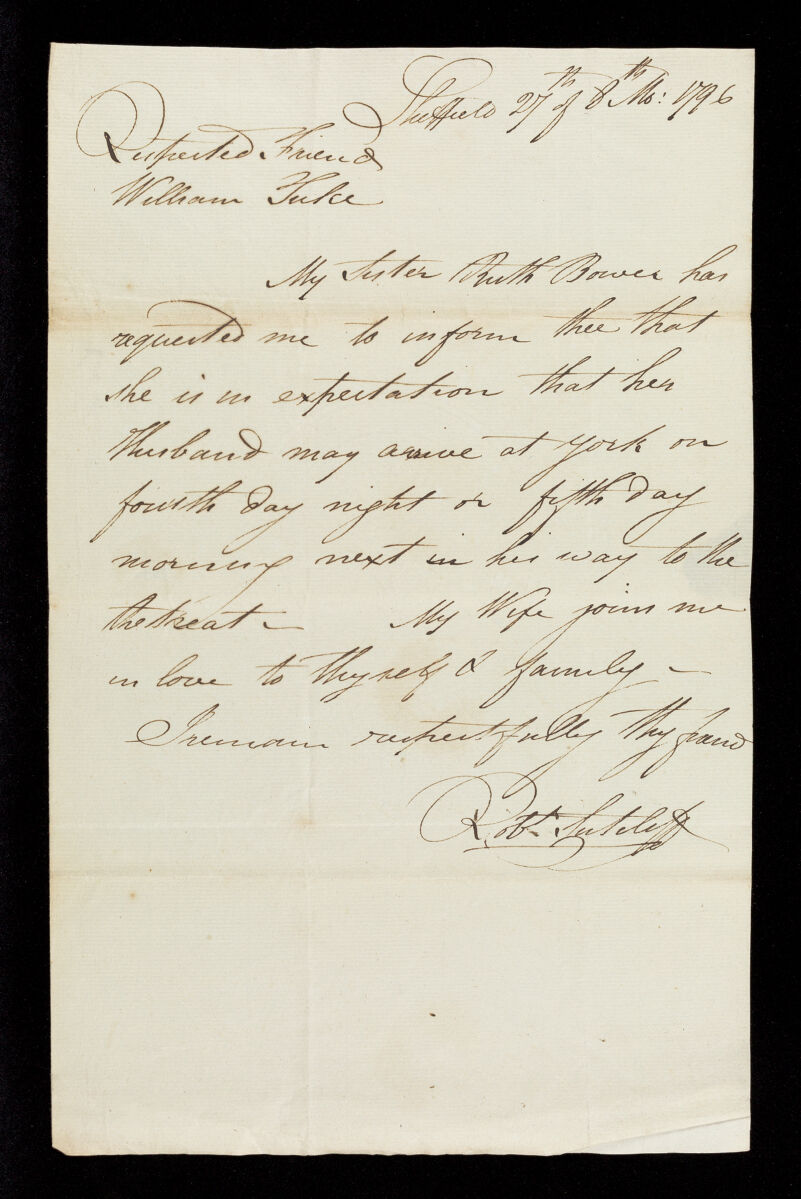 Sheffield 27th of 8th Mo: 1796
Respected Friend
William Tuke
My Sister Ruth Bower has
requested me to inform thee that
she is in expectation that her
Husband may arrive at York on
fourth day night or fifth day
morning next in his way to the
the treat – My Wife joins me
in love to thyself & family –
I remain respectfully thy friend
Robt. Sutcliff